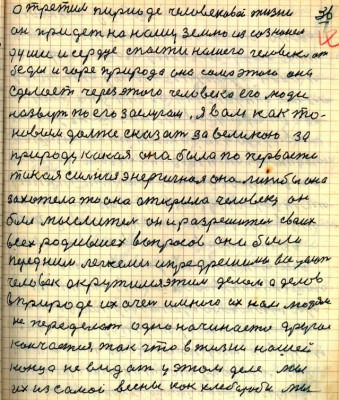 о третим периоде человековой жизни 36
он придет на нашу землю из сознания
души и сердце спасти нашего человека от
беды и горе природа она сама этого она
сделает через этого человека его люди
назвут по его заслугам, я вам как та-
ковым должен сказать за великою за
природу какая она была по первости
такая сильная энергичная она лишь бы она
захотела то она открыла человеку он
был мыслителем он и разрешител своих
всех родившех вопросов они были
перед ним легкеми и предрешими все умеет
человек окружился этим делом а делов
в природе их очен и много их нам людям
не переделат одно начинается другая
кончается так что в жизни нашей
конца не видат у этом деле мы
их из самой весны как хлебаробы мы